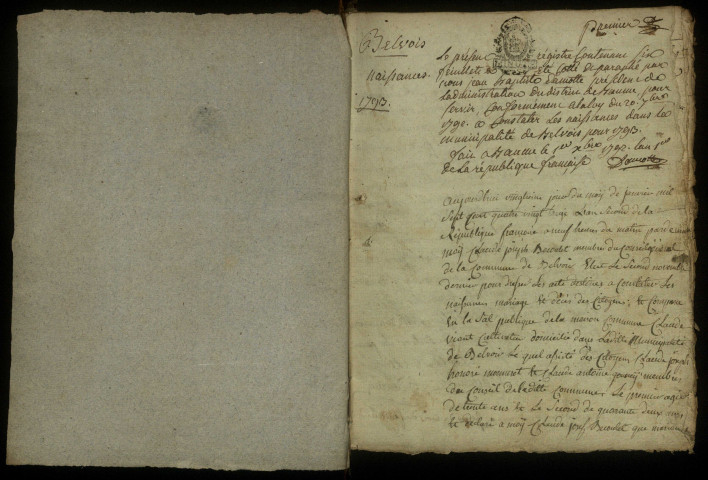 Belvois
naissances.
1793.
premier
Le présent registre Contenant six
feuillets a été Cotté et paraphé par
nous jean Baptiste Damotte président de
Ladministration du district de Baume, pour
servir Conformement a la loy du 20. 7bre
1792. a Constater Les naissances dans la
municipalité de Belvois pour 1793.
fait a Baume le 1er xbre 1792. lan 1er
de la république française Damotte
aujourdhuy vingtieme jour du moy de janvier mil
sept cent quatre vingt treize Lean second de la
République francoise a neuf heures du matin pardevant
moy Claude joseph Bercolet membre du Conseil general
de la Commune de Belvoir Elut Le second novembre
dernier pour dresser Les acts destines a Constater Les
naissances mariage & décès des Citoyens; & Comparu
En la sal publique de la maison Commune Claude
viant Cultivateur domicilié dans Ledite Municipalité
de Belvoir Le quel assisté des Citoyens Claude joseph
honoré monnot & Claude antoine membres
du Conseil de Ladite Commune, Le premier agé
de trente ans & Le Second de quarante deux ans,
& declaré a moy Claude josph Bercolet que